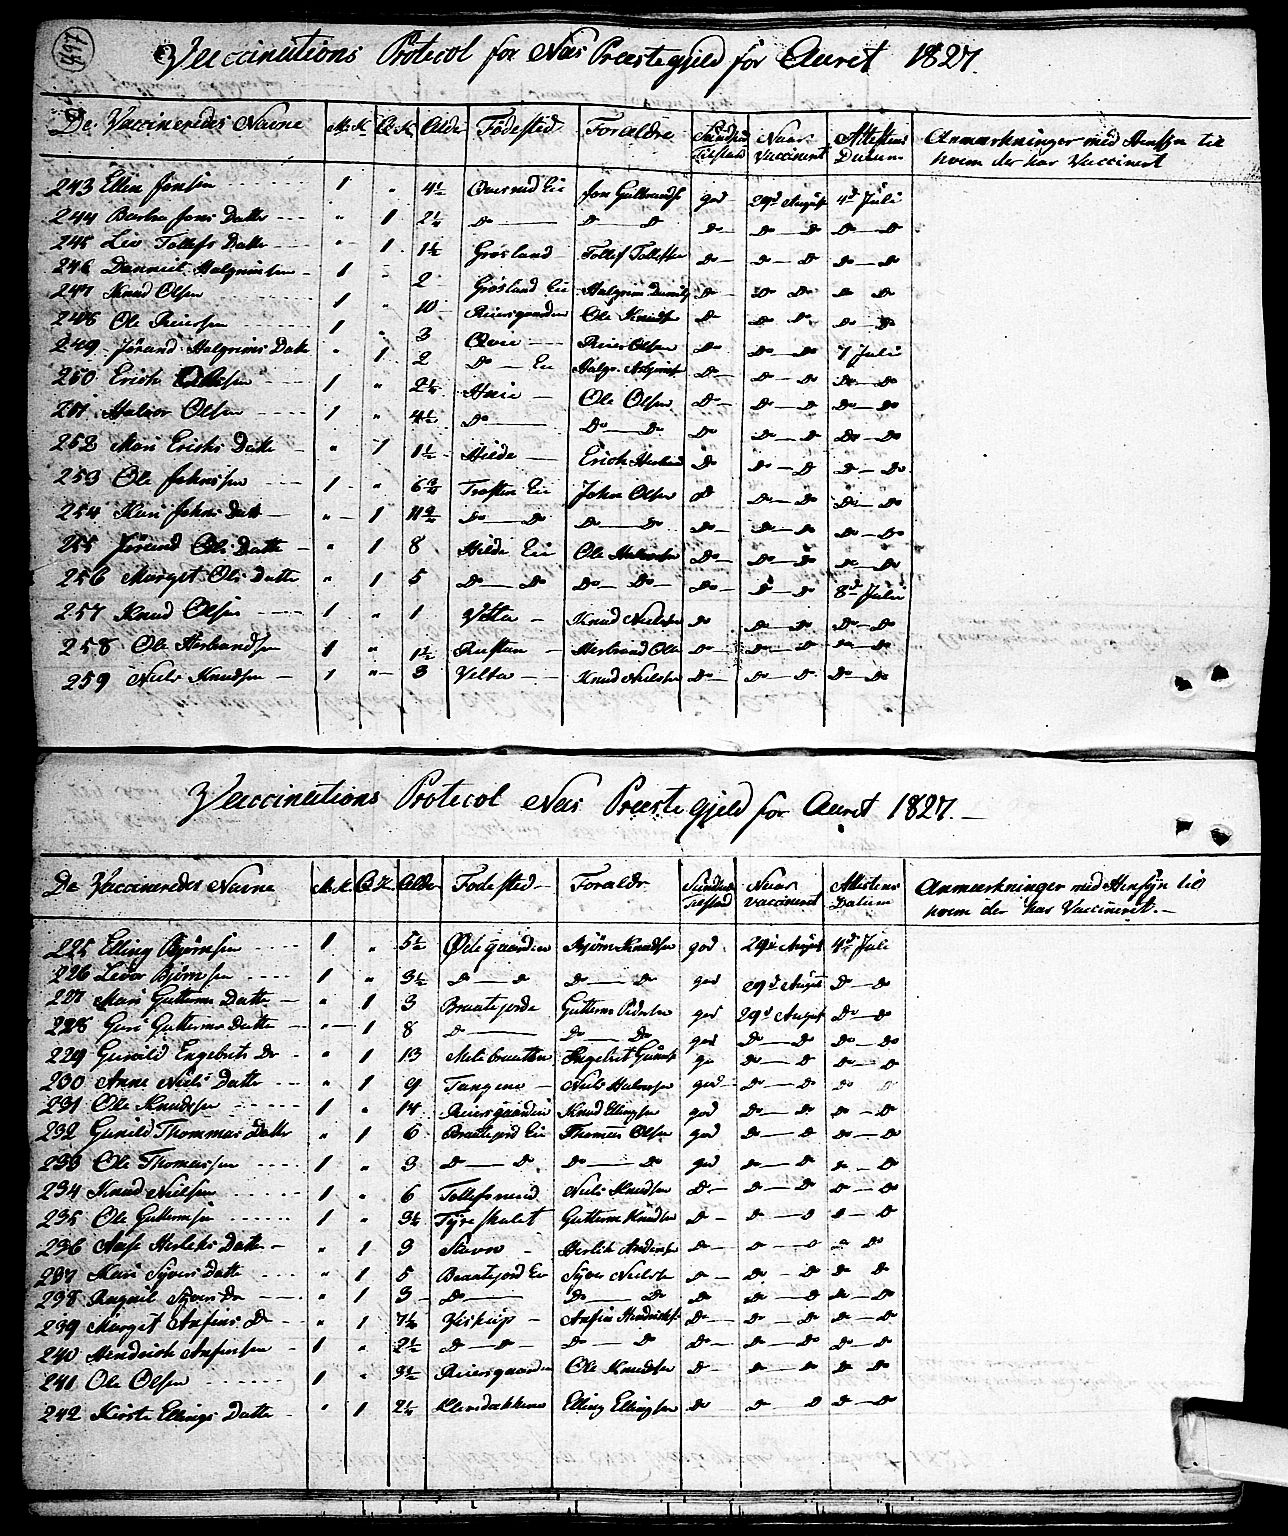 497
Vaccinations Protocol for Næs Præstegjeld for Aaret 1827.
De Vaccineredes Navne M.K. Q.K. Alder Fødested Forældre Sundheds Tilstand Naar Vaccineret Attestens Datum Anmærkninger med Hensyn til hvem der har Vaccineret
243 Ellen Jonsen 1 " 4½ Qverned Eie Jon Gulbrands god 29d August 4d Juli
244 Barbra Jons Datter " 1 2¼ Do Do Do Do Do Do Do Do
245 Liv Tollefs Datte " 1 1½ Grøsland Tollef Tollefsen Do Do Do Do Do
246 Danniel Halgrimsen 1 " 2 Grøsland Eie Halgrim Do 30 Do Do Do
247 Knud Olsen 1 " 10 Reiersgaarden Ole Knudsen Do Do Do Do Do
248 Ole Reiersen 1 " 3 Qvie Reier Olsen Do Do Do 7 Juli
249 Jørand Halgrims Datte " 1 2 Do Eie Halgr. Do Do Do Do Do
250 Erich Olsen 1 " 2½ Haie Ole Olsen Do Do Do Do Do
251 Halvor Olsen 1 " 4½ Do Do Do Do Do Do Do Do
252 Mari Erichs Datte " 1 1½ Hilde Erich Herbrand Do Do Do Do Do
253 Ole Johnsen 1 " 6¾ Trosten Eie John Olsen Do Do Do Do Do
254 Kari Johns Datt " 1 Do Do Do Do Do Do Do Do
255 Jørand Ols Datte " 1 8 Hilde Eie Ole Halvorsen Do Do Do Do Do
256 Margit Ols Datte " 1 5 Do Do Do Do Do Do Do 8d Julii
257 Knud Olsen 1 " 1 Vetta Knud Nielsen Do Do Do Do Do
258 Ole Herbrandsen 1 " 1½ Rustan Herbrand Olse Do Do Do Do Do
259 Niels Knudsen 1 " 3 Velta Knud Nielsen Do Do Do Do Do
Vaccinations Protocol Næs Præstegjeld for Aaret 1827.
De Vaccineredes Navne M.K. Q.K. Alder Fødested Forældr Sundheds Tilstand Naar Vaccineret Attestens Datum Anmærkninger med Hensyn til hvem der har Vaccineret.
225 Elling Bjørnsen 1 " 5½ Ødegaarden Bjørn Knudsen god 29d August 4d Juli
226 Levor Bjørnsen 1 " 3½ Do Do Do Do god 29d August Do Do
227 Mari Guttorms Datte " 1 3 Braatejorde Guttorm Pedersen god 29d August Do Do
228 Guri Guttorms Datte " 1 8 Do Do Do god Do Do Do Do
229 Gunild Engebrets Dr " 1 13 Melbraatten Engebret Do Do Do Do
230 Anne Niels Datte " 1 9 Tangene Niels Halvorsen god Do Do Do Do
231 Ole Knudsen 1 " 14 Reiersgaarden Knud Ellingsen god Do Do Do Do
232 Gunild Thommas Datter " 1 6 Braatejord Eie Thomas Olsen god Do Do Do Do
233 Ole Thomassen 1 " 3 Do Do Do Do god Do Do Do Do
234 Knud Nielsen 1 " 6 Tollefsrud Niels Knudsen Do Do Do Do Do
235 Ole Guttormsen 1 " 3½ Guttorm Knudsen Do Do Do Do Do
236 Aase Herleks Datte " 1 3 Stavn Herlik Andersen Do Do Do Do Do
237 Kari Syvers Datte " 1 5 Braatejord Eie Syver Nielsen Do Do Do Do Do
238 Ragnil Syvers Dr " 1 3 Do Do Do Do Do Do Do Do
239 Margit Anfins D " 1 7½ Viskup Anfin Hendrichs Do Do Do Do Do
240 Hendrich Anfinsen 1 " 2½ Do Do Do Do Do Do Do Do Do
241 Ole Olsen 1 " 3½ Reiersgaarden Ole Knudsen Do Do Do Do Do
242 Kirsti Ellings Datte " 1 2½ Elling Ellingsen Do Do Do Do Do